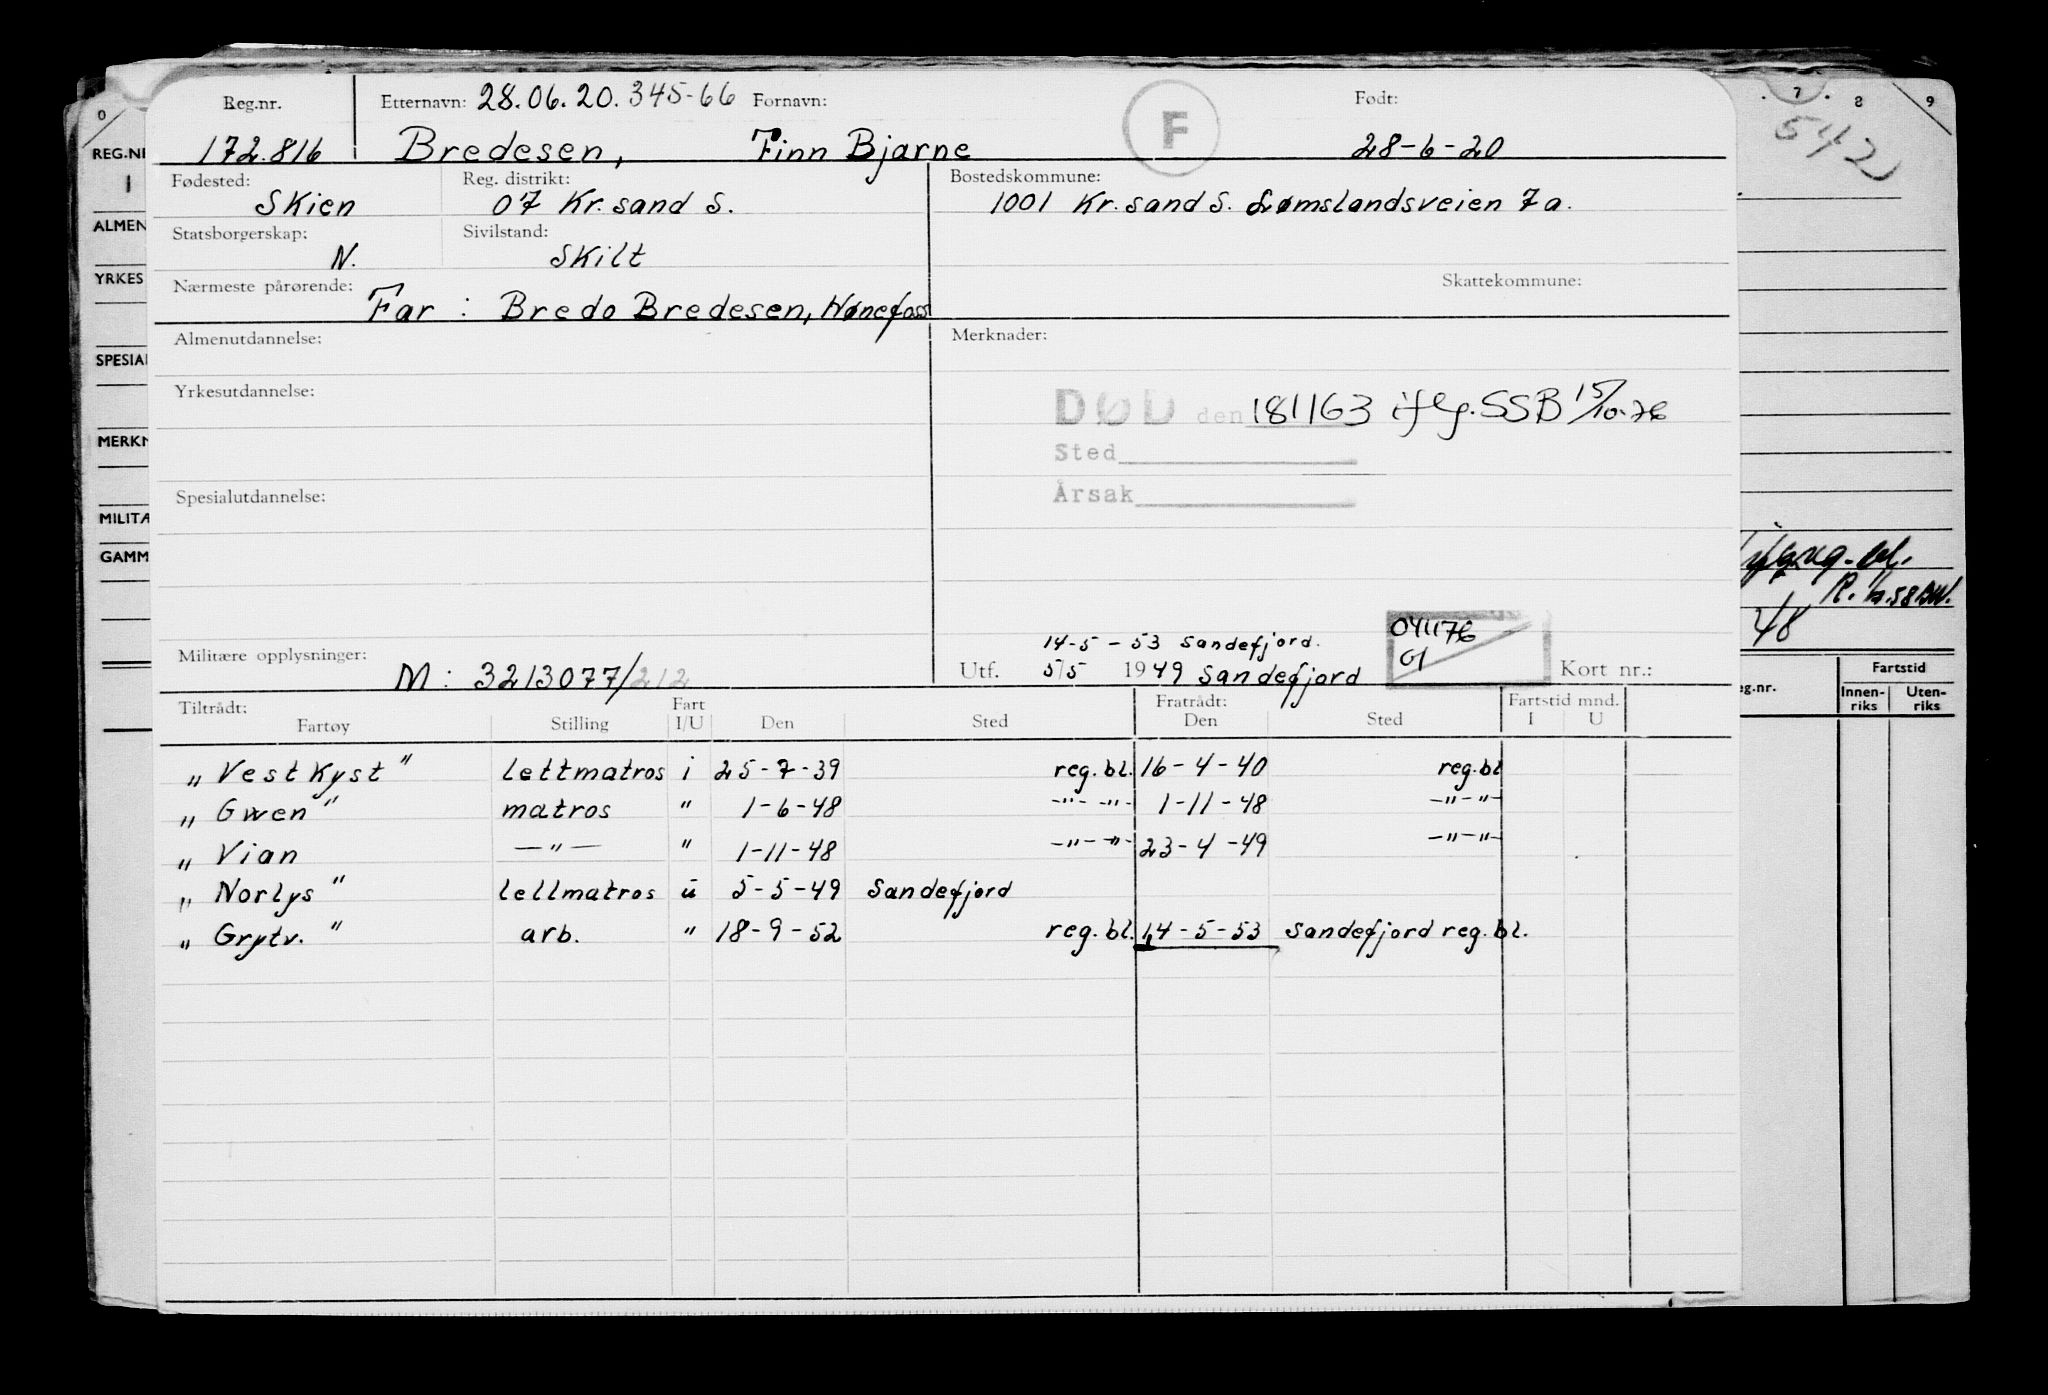 Reg.nr. Etternavn: 28.06.20.345-66 Fornavn: F Født:
172.816 Bredesen, Finn Bjarne 28-6-20
Fødested: Reg. distrikt: Bostedskommune:
Skien 07 Kr.sand S. 1001 Kr.sand S. Lømslandsveien 7a.
Statsborgerskap: Sivilstand:
N. Skilt
Nærmeste pårørende: Skattekommune:
Far: Bredo Bredesen, Hønefoss
Almenutdannelse: Merknader:
Yrkesutdannelse:
DØD den 181163 iflg. SSB 15/10-76
Sted
Årsak
Spesialutdannelse:
14-5-53 Sandefjord.
041176
01
Militære opplysninger: M: 3213077/212 Utf. 5/5 1949 Sandefjord Kort nr.:
Tiltrådt: Fart Fratrådt: Fartstid mnd.
Fartøy Stilling I/U Den Sted Den Sted I U
"Vestkyst" lettmatros i 25-7-39 reg.bl. 16-4-40 reg.bl
"Gwen" matros " 1-6-48 -"- -"- 1-11-48 -"-"-
"Vian -"- " 1-11-48 -"- -"- 23-4-49 -"-"-
"Norlys" lettmatros u 5-5-49 Sandefjord
"Grytv." arb. " 18-9-52 reg.bl. 14-5-53 Sandefjord reg.bl.
0
REG.N
1
ALMEN
YRKES
SPESIA
MERK
MILITÆ
GAMM
7 8 9
542
R. 58 BW.
48
eg.nr. Fartstid
Innen-riks Uten-riks